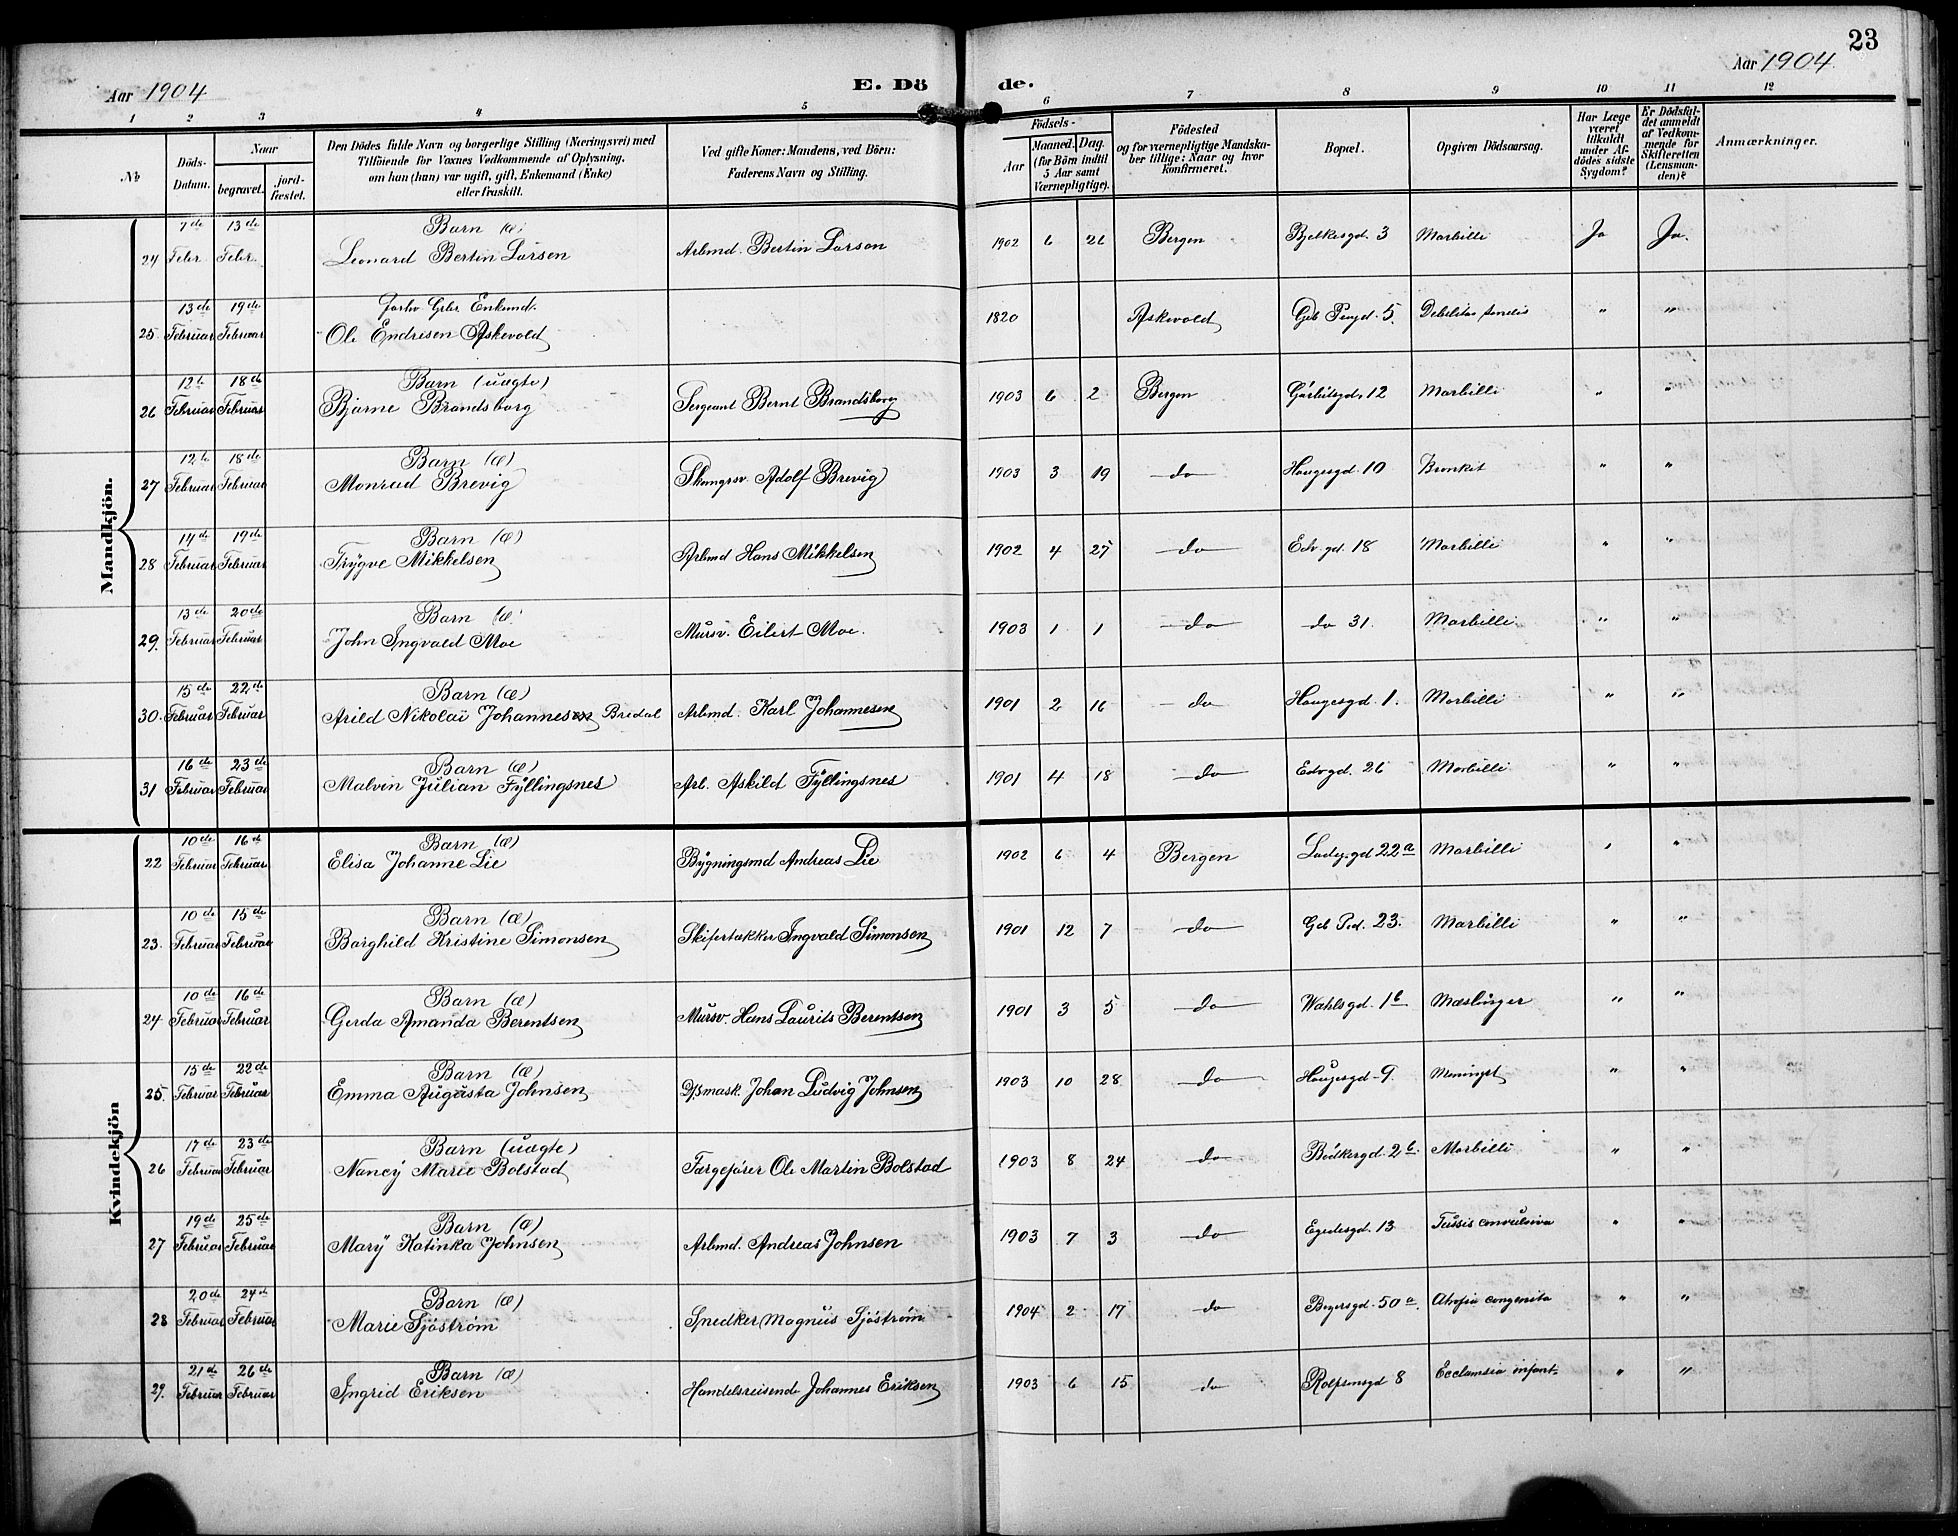 23
Aar 1904
E. Dö
de.
Aar 1904
1 2 3 4 5 6 7 8 9 10 11 12
№
Döds-Datum.
Naar
begravet.
jord-fæstet.
Den Dödes fulde Navn og borgerlige Stilling (Næringsvei) med
Tilföiende for Voxnes Vedkommende af Oplysning,
om han (hun) var ugift, gift, Enkemand (Enke)
eller fraskilt.
Ved gifte Koner: Mandens, ved Börn:
Faderens Navn og Stilling.
Födsels-
Aar
Maaned. Dag.
(for Börn indtil
5 Aar samt
Værnepligtige).
Födested
og for værnepligtige Mandska-
ber tillige: Naar og hvor
konfirmeret.
Bopæl.
Opgiven Dödsaarsag.
Har Læge
været
tilkaldt
under Af-
dödes sidste
Sygdom?
Er Dödsfal-
det anmeldt
af Vedkom-
mende for
Skifteretten
(Lensman-
den)?
Anmærkninger.
Mandkjön.
7de 13de Barn (æ)
24 Febr. Febr. Leonard Bertin Larsen Arbmd. Bertin Larsen 1902 6 26 Bergen Bjelkesgd. 3 Morbilli Ja Ja.
13de 19de Enkemd.
25. Februar Februar Ole Endresen Askevold 1820 Askevold 5. Debilitas senilis " "
12te 18de Barn (uægte)
26 Februar Februar Bjarne Brandsborg Sergeant Bernt Brandsborg 1903 6 2 Bergen 12 Morbilli " "
12te 18de Barn (æ)
27 Februar Februar Monrad Brevig Adolf Brevig 1903 3 19 do Haugesgd. 10 Bronkit " "
14de 19de Barn (æ)
28 Februar Februar Trygve Mikkelsen Arbmd Hans Mikkelsen 1902 4 27 do Edv. gd. 18 Morbilli " "
13de 20de Barn (æ)
29. Februar Februar John Ingvald Moe Mursv. Eilert Moe. 1903 1 1 do do 31. Morbilli " "
15de 22de Barn (æ)
30. Februar Februar Arild Nikolai Johannesen Bredal Arbmd. Karl Johannesen 1901 2 16 do Haugesgd. 1. Morbilli " "
16de 23de Barn (æ)
31 Februar Februar Malvin Julian Fyllingsnes Arb. Askildt Fyllingsnes 1901 4 18 do Edvgd. 26 Morbilli " "
Kvindekjön
10de 16de Barn (æ)
22 Februar Februar Elisa Johanne Lie Bygningsmd Andreas Lie 1902 6 4 Bergen 22a Morbilli " "
10de 15de Barn (æ)
23. Februar Februar Borghild Kristine Simonsen Skifertækker Ingvald Simonsen 1901 12 7 do 23. Morbilli " "
10de 16de Barn (æ)
24 Februar Februar Gerda Amanda Berentsen Mursv. Hans Laurits Berentsen 1901 3 5 do Wahlsgd. 1b Mæslinger " "
15de 22de Barn (æ)
25. Februar Februar Emma Augusta Johnsen Johan Ludvig Johnsen 1903 10 28 do Haugesgd. 9. Meningit " "
17de 23de Barn (uægte)
26 Februar Februar Nancy Marie Bolstad Færgefører Ole Martin Bolstad 1903 8 24 do Bødkergd. 2b. Morbilli " "
19de 25de Barn (æ)
27 Februar Februar Mary Katinka Johnsen Arbmd. Andreas Johnsen 1903 7 3 do Egedesgd. 13 Tussis convulsiva " "
20de 24de Barn (æ)
28 Februar Februar Marie Sjöström Snedker Magnus Sjöström 1904 2 17 do 50a. Atrofia congenita " "
21de 26de Barn (æ)
29. Februar Februar Ingrid Eriksen Handelsreisende Johannes Eriksen 1903 6 15 do Rolfsensgd 8 Ecclamsia infant. " "